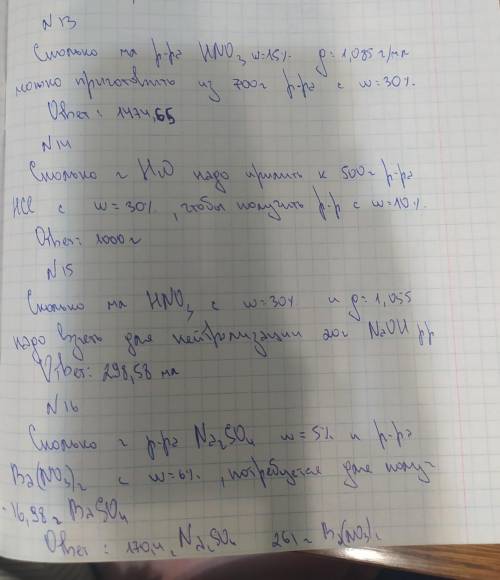 N 13
Сколько мл р-ра HNO3 w=15% g=1,085 г/мл
можно приготовить из 700г р-ра с w=30%.
Ответ: 1474,65
N14
Сколько г H2O надо прилить к 500г р-ра
HCl с w=30%, чтобы получить р-р с w=10%.
Ответ: 1000г
N15
Сколько мл HNO3 с w=30% и g=1,055
надо взять для нейтрализации 20г NaOH рр
Ответ: 298,58 мл
N16
Сколько г р-ра Na2SO4 w=5% и р-ра
Ba(NO3)2 с w=6%, потребуется для получ-
16,98г BaSO4
Ответ: 170,4г Na2SO4 261г Ba(NO3)2